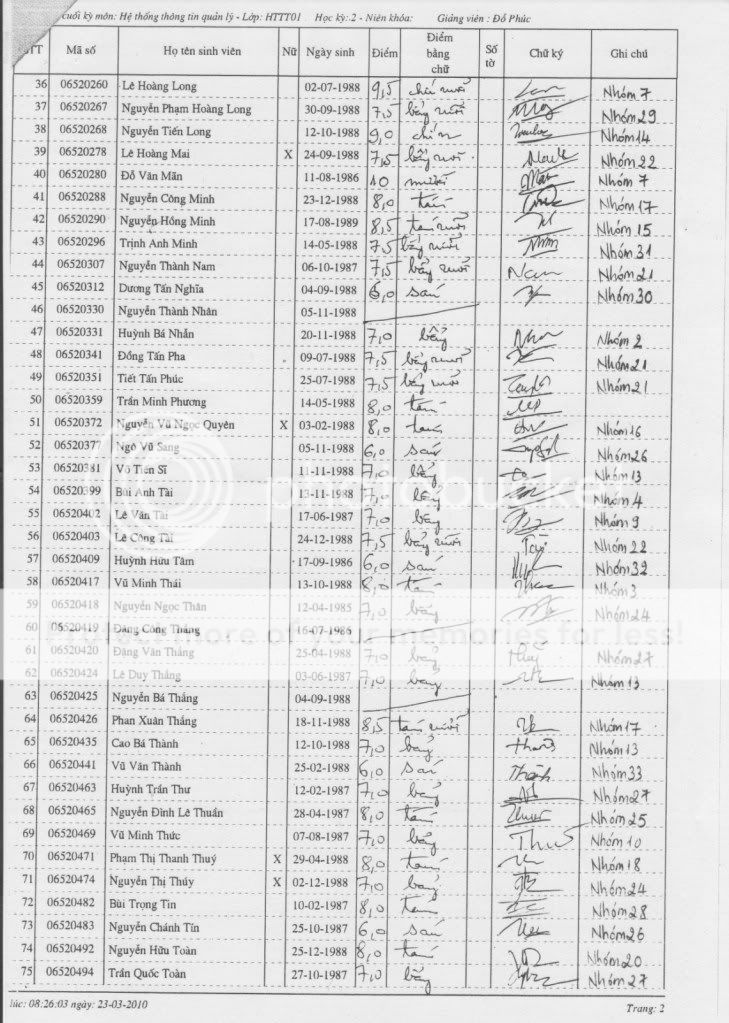 cuối kỳ môn: Hệ thống thông tin quản lý - Lớp: HTTT01 Học kỳ: 2 - Niên khóa: Giảng viên : Đỗ Phúc
TT Mã số Họ tên sinh viên Nữ Ngày sinh Điểm Điểm bằng chữ Số tờ Chữ ký Ghi chú
36 06520260 Lê Hoàng Long 02-07-1988 9,5 chín rưỡi Nhóm 7
37 06520267 Nguyễn Phạm Hoàng Long 30-09-1988 7,5 bảy rưỡi Nhóm 29
38 06520268 Nguyễn Tiến Long 12-10-1988 9,0 chín Nhóm 14
39 06520278 Lê Hoàng Mai X 24-09-1988 7,5 bảy rưỡi Nhóm 22
40 06520280 Đỗ Văn Mãn 11-08-1986 10 mười Nhóm 7
41 06520288 Nguyễn Công Minh 23-12-1988 8,0 tám Nhóm 17
42 06520290 Nguyễn Hồng Minh 17-08-1989 8,5 tám rưỡi Nhóm 15
43 06520296 Trịnh Anh Minh 14-05-1988 7,5 bảy rưỡi Nhóm 31
44 06520307 Nguyễn Thành Nam 06-10-1987 7,5 bảy rưỡi Nam Nhóm 21
45 06520312 Dương Tấn Nghĩa 04-09-1988 6,0 sáu Nhóm 30
46 06520330 Nguyễn Thành Nhân 05-11-1988
47 06520331 Huỳnh Bá Nhẫn 20-11-1988 7,0 bảy Nhóm 2
48 06520341 Đồng Tấn Pha 09-07-1988 7,5 bảy rưỡi Nhóm 21
49 06520351 Tiết Tấn Phúc 25-07-1988 7,5 bảy rưỡi Nhóm 21
50 06520359 Trần Minh Phương 14-05-1988 8,0 tám
51 06520372 Nguyễn Vũ Ngọc Quyên X 03-02-1988 8,0 tám Nhóm 16
52 06520377 Ngô Vũ Sang 05-11-1988 6,0 sáu Nhóm 26
53 06520381 Võ Tiến Sĩ 11-11-1988 7,0 bảy Nhóm 13
54 06520399 Bùi Anh Tài 13-11-1988 7,0 bảy Nhóm 4
55 06520402 Lê Văn Tài 17-06-1987 7,0 bảy Nhóm 9
56 06520403 Lê Công Tài 24-12-1988 7,5 bảy rưỡi Nhóm 22
57 06520409 Huỳnh Hữu Tâm 17-09-1986 6,0 sáu Nhóm 32
58 06520417 Vũ Minh Thái 13-10-1988 8,0 tám Nhóm 3
59 06520418 Nguyễn Ngọc Thân 12-04-1985 7,0 bảy Nhóm 24
60 06520419 Đặng Công Thắng 16-07-1986
61 06520420 Đặng Văn Thắng 25-04-1988 7,0 bảy Nhóm 27
62 06520424 Lê Duy Thắng 03-06-1987 7,0 bảy Nhóm 13
63 06520425 Nguyễn Bá Thắng 04-09-1988
64 06520426 Phan Xuân Thắng 18-11-1988 8,5 tám rưỡi Nhóm 17
65 06520435 Cao Bá Thành 12-10-1988 7,0 bảy Nhóm 13
66 06520441 Vũ Văn Thành 25-02-1988 6,0 sáu Thành Nhóm 33
67 06520463 Huỳnh Trần Thư 12-02-1987 7,0 bảy Nhóm 27
68 06520465 Nguyễn Đình Lê Thuần 28-04-1987 8,0 tám Nhóm 25
69 06520469 Vũ Minh Thức 07-08-1987 7,0 bảy Nhóm 10
70 06520471 Phạm Thị Thanh Thuý X 29-04-1988 8,0 tám Nhóm 18
71 06520474 Nguyễn Thị Thúy X 02-12-1988 7,0 bảy Nhóm 24
72 06520482 Bùi Trọng Tín 10-02-1987 8,0 tám Nhóm 28
73 06520483 Nguyễn Chánh Tín 25-10-1987 6,0 sáu Nhóm 26
74 06520492 Nguyễn Hữu Toàn 25-12-1988 8,0 tám Nhóm 20
75 06520494 Trần Quốc Toàn 27-10-1987 7,0 bảy Nhóm 27
lúc: 08:26:03 ngày: 23-03-2010 Trang: 2